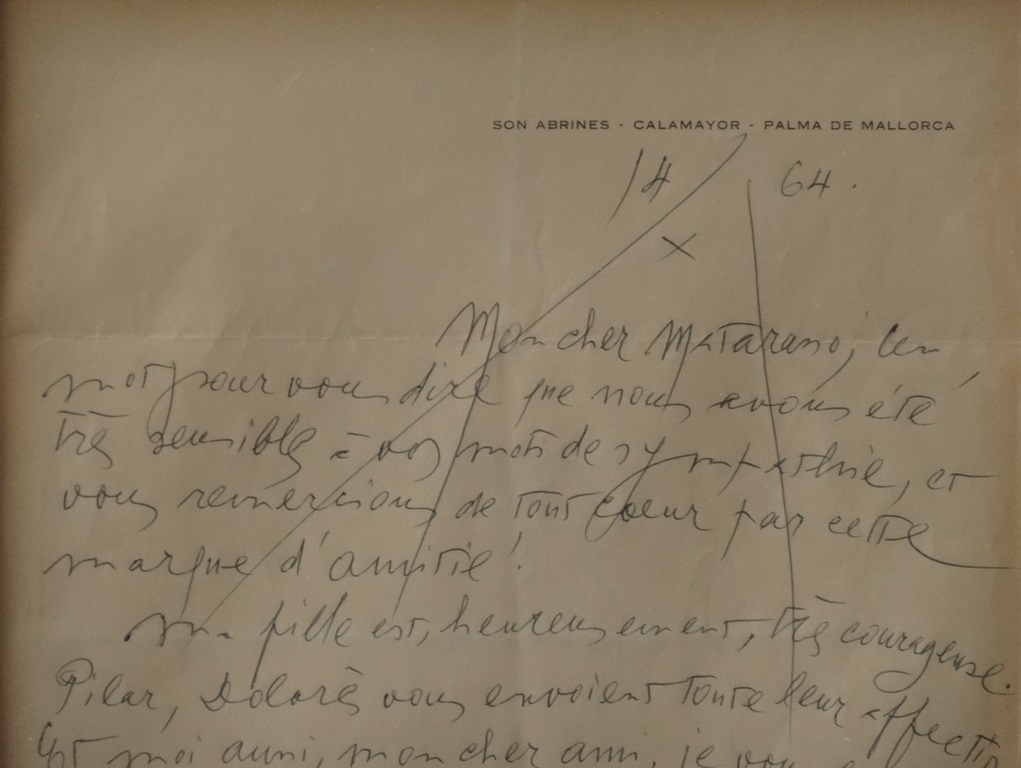 SON ABRINES - CALAMAYOR - PALMA DE MALLORCA
14 X 64.
Mon cher Matarano, Un
mot pour vous dire que nous avons été
très sensible à vos mots de sympathie, et
vous remercions de tout coeur par cette
marque d'amitié!
Ma fille est, heureusement, très courageuse.
Pilar, Dolorès vous envoient toute leur affectio
Et moi aussi, mon cher ami, je vous